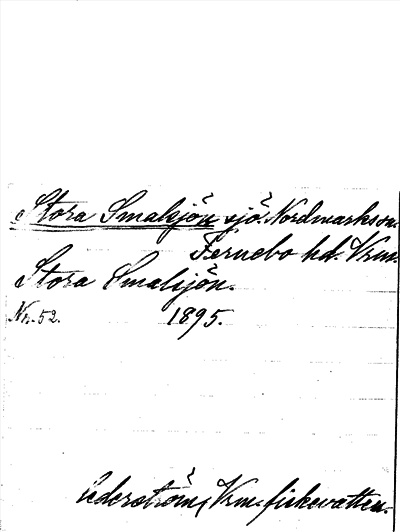 Stora Smalsjön sjö. Nordmarks sn.
Fernebo hd. Vrm.
Stora Smalsjön.
Nr. 52. 1895.
Cederström, Vrm. fiskevatten.